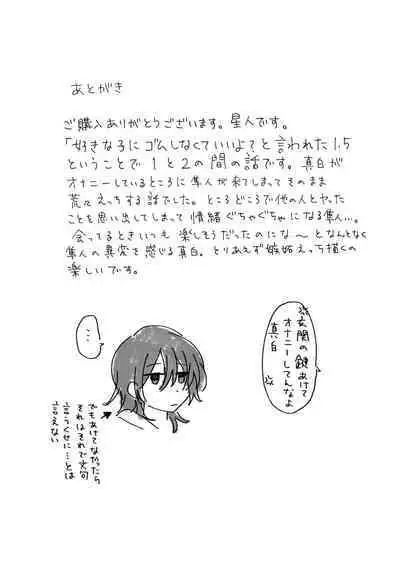 あとがき
ご購入ありがとうございます。星人です。
「好きな子にゴムしなくていいよ?と言われた1.5
ということで1と2の間の話です。真白が
オナニーしているところに隼人が来てしまってそのまま
荒々えっちする話でした。ところどころで他の人とヤった
ことを思い出してしまって情緒ぐちゃぐちゃになる隼人…。
会ってるときいつも楽しそうだったのにな〜となんとなく
隼人の異変を感じる真白。とりあえず嫉妬えっち描くの
楽しいです。
※玄関の鍵あけて
オナニーしてんなよ
真白
…
でもあけてなかったら
それはそれで文句
言うくせに…とは
言えない